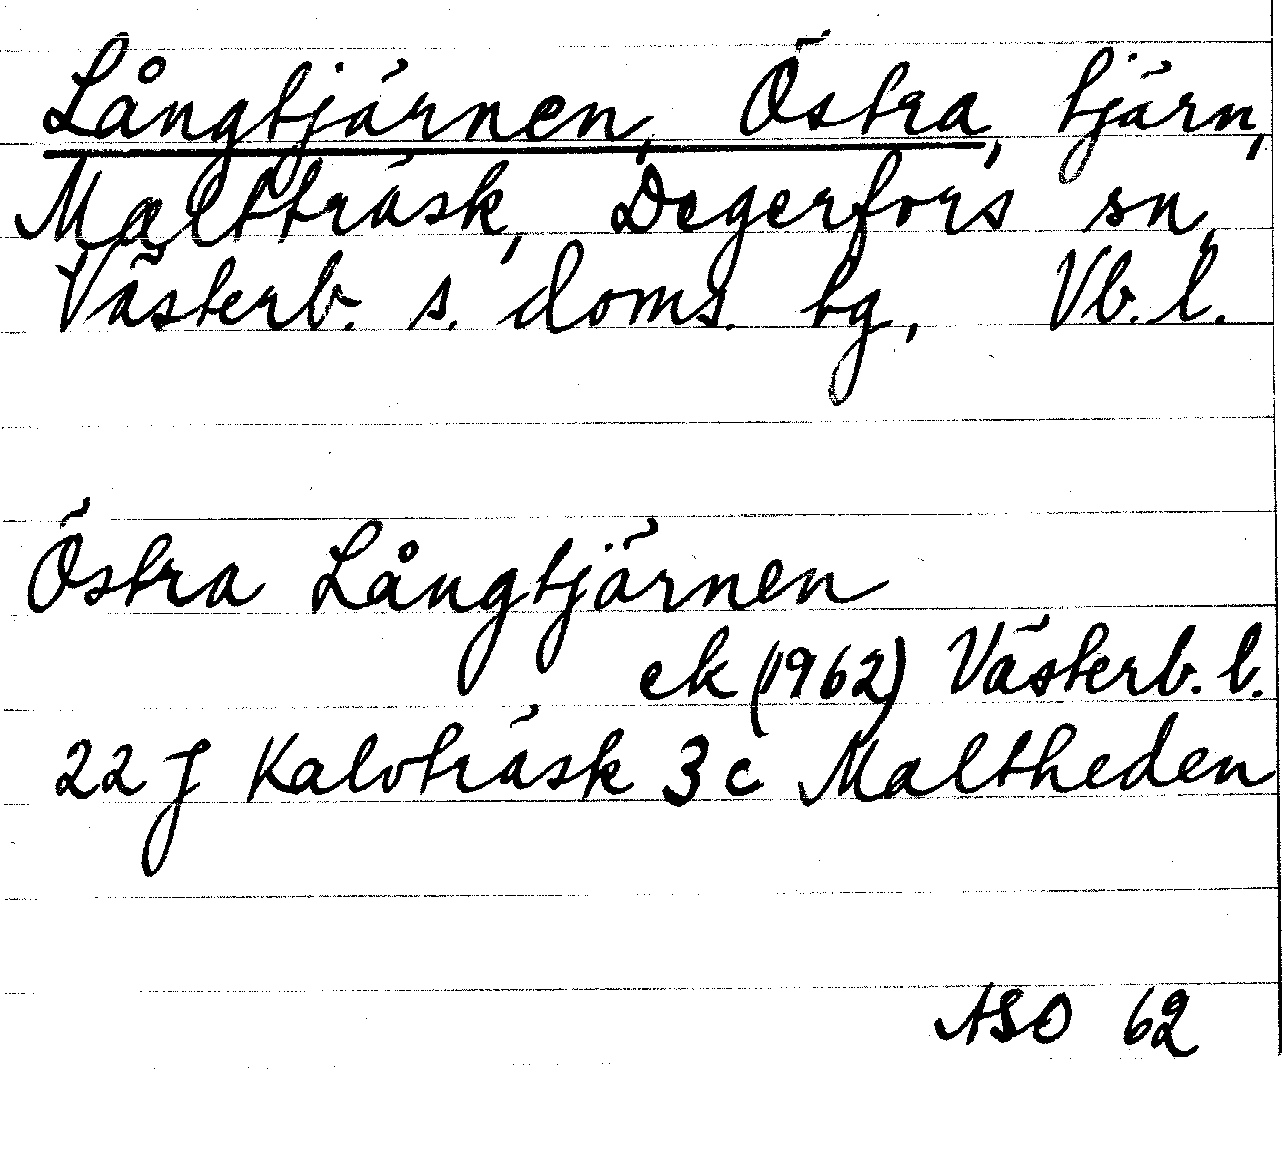 Långtjärnen, Östra, tjärn,
Maltträsk, Degerfors sn,
Västerb. s. doms. tg, Vb. l.
Östra Långtjärnen
ek (1962) Västerb. l.
22 J Kalvträsk 3 c Maltheden
ASO 62